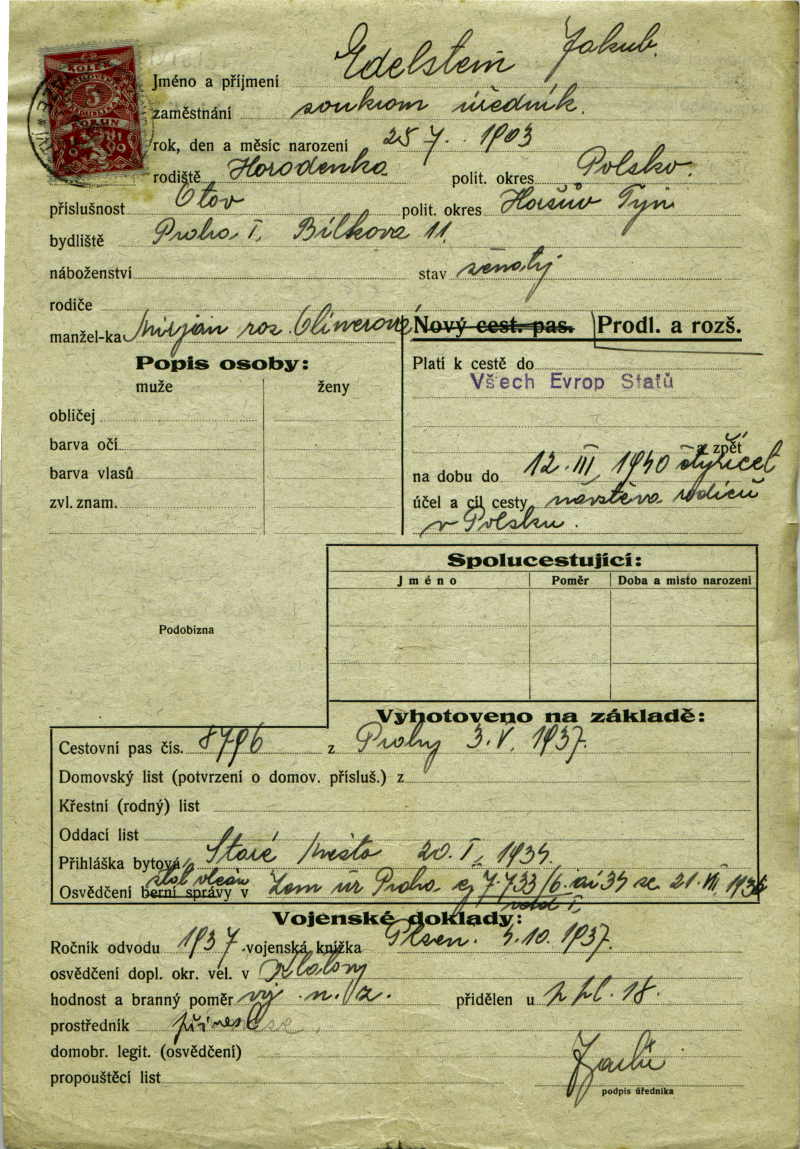 Jméno a příjmení Edelstein Jakub.
zaměstnání soukrom úředník.
rok, den a měsíc narození 25 7. 1903
rodiště Horodenka polit. okres Polsko.
příslušnost Otov polit. okres Horšův Týn
bydliště Praha I, Bílkova 11.
náboženství stav ženatý
rodiče
manžel-ka Mirjam roz. Olinerová
Nový cest. pas. Prodl. a rozš.
Popis osoby:
muže ženy
obličej
barva očí
barva vlasů
zvl. znam.
Platí k cestě do
Všech Evrop Statů
a zpět
na dobu do 12. III. 1940 čtyřicet
účel a cíl cesty návštěva rodičů
v Polsku.
Podobizna
Spolucestující:
Jméno Poměr Doba a místo narození
Vyhotoveno na základě:
Cestovní pas čís. 8796 z Prahy 3. V. 1937.
Domovský list (potvrzení o domov. přísluš.) z
Křestní (rodný) list
Oddací list
Přihláška bytová Staré Město 20. I.
Osvědčení berní správy v stát občan Zem úř Praha
Vojenské doklady:
Ročník odvodu 1937 vojenská knížka Plzeň. 10. 1937.
osvědčení dopl. okr. vel. v Klatovy
hodnost a branný poměr voj. n. z. přidělen u p pl. 18.
prostředník
domobr. legit. (osvědčení)
propouštěcí list
podpis úředníka
5
KORUN